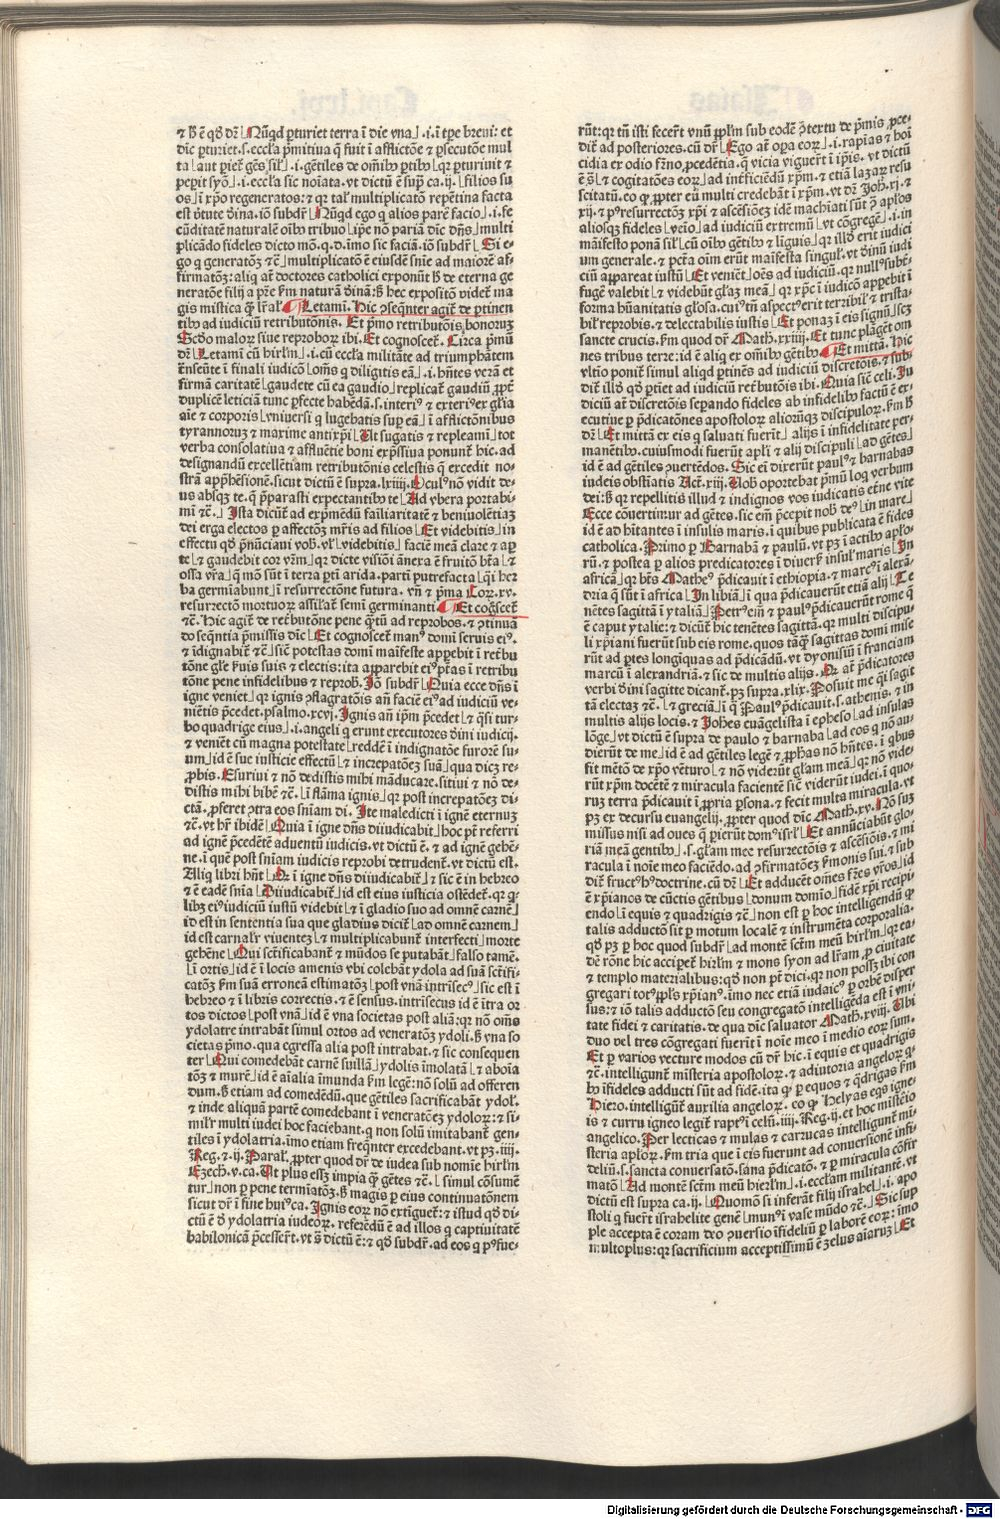 ⁊ hͦ ē qd̄ dr̄ Nūqd ꝑturiet terra ī die vna .i. ī tꝑe breui: et
dīc ꝑturiet .s. eccl̄a p̄mitiua q̄ fuit ī afflictōe ⁊ ꝑsecutōe mul
ta aut ꝑiet gēs sil̄ .i. gētiles de om̄ibꝰ ꝑtibꝰ qꝛ ꝑturiuit ⁊
peꝑit syō .i. eccl̄a sic noīata. vt dictū ē supͣ ca. ij. filios su
os ī xp̄o regeneratos: ⁊ qꝛ tal̄ multiplicatō repētina facta
est v̄tute dīna. iō subdr̄ Nūqd ego q alios parē facio .i. fe
cūditatē naturalē oībꝰ tribuo ip̄e nō pariā dīc dn̄s multi
plicādo fideles dicto mō. q. d. īmo sic faciā. iō subdr̄ Si e-
go q generatōꝫ ⁊c̄ multiplicatō ē eiusdē snīe ad maiorē af-
firmatōꝫ: aliq̄ at̄ doctores catholici exponūt hͦ de eterna ge
neratōe filij a p̄re ẜm naturā dīnā: s̄ hec expositō videt̄ ma
gis mistica qͣ̄ lr̄al̄ Letamī. Hic ꝯseqn̄ter agit̄ de ꝑtinen
tibꝰ ad iudiciū retributōnis. Et p̄mo retributōis bonoꝝ
Scd̄o maloꝝ siue reproboꝝ ibi. Et cognoscet̄. Circa p̄mū
dꝛ Letamī cū hirl̄m .i. cū eccl̄a militāte ad triumphātem
trāseūte ī finali iudicō om̄s q diligitis eā .i. hn̄tes verā et
firmā caritatē gaudete cū ea gaudio replicat̄ gaudiū ꝓpt̄
duplicē leticiā tunc ꝑfecte habēdā .s. interiꝰ ⁊ exteriꝰ ex gl̄ia
aīe ⁊ corporis vniuersi q lugebatis suꝑ eā ī afflictōnibus
tyrannoꝝ ⁊ maxime antixp̄i Ut sugatis ⁊ repleamī tot
verba consolatiua ⁊ affluētie boni exp̄ssiua ponunt̄ hic. ad
designandū excellētiam retributōnis celestis q̄ excedit no-
strā app̄hēsionē. sicut dictū ē supra. lxiiij. Oculꝰ nō vidit de-
us absqꝫ te. q̄ p̄parasti expectantibꝰ te Ad vbera portabi-
mī ⁊c̄. Ista dicūt̄ ad exp̄mēdū failiaritatē ⁊ beniuolētiaꝫ
dei erga electos ꝑ affectōꝫ mr̄is ad filios Et videbitis in
effectu qd̄ p̄nūciaui vob̄. vl̄ videbitis faciē meā clare ⁊ aꝑ
te ⁊ gaudebit cor vr̄m qꝛ dicte visiōi ānexa ē fruitō bt̄a ⁊
ossa vr̄a q̄ mō sūt ī terra ꝑtī arida. partī putrefacta q̄si her
ba germīabunt ī resurrectōne futura. vn̄ ⁊ p̄ma Coꝝ. xv.
resurrectō mortuoꝝ assilat̄ semī germinanti. Et cogscet̄
⁊c̄. Hic agit̄ de ret̄butōne pene qͣ̄tū ad reprobos. ⁊ ꝯtinuā
do seqn̄tia p̄missis dīc Et cognoscet̄ manꝰ domī seruis eiꝰ.
⁊ īdignabit̄ ⁊c̄ sic̄ potestas domī maīfeste apꝑebit ī ret̄bu
tōne gl̄e ẜuis suis ⁊ electis: ita apparebit eiꝰ pt̄as ī retribu
tōne pene infidelibus ⁊ reprob̄. Iō subdr̄ Quia ecce dn̄s ī
igne veniet qꝛ ignis ꝯflagratōis an̄ faciē eiꝰ ad iudiciū ve-
niētis p̄cedet. psalmo. xcvi. Ignis an̄ ip̄m p̄cedet ⁊ q̄si tur-
bo quadrige eius .i. angeli q erunt executores dīni iudicij.
⁊ veniēt cū magna potestate reddē ī indignatōe furorē su-
um id ē sue iusticie effectū ⁊ increpatōeꝫ suā qua dicꝫ re-
ꝓbis. Esuriui ⁊ nō dedistis mihi māducare. sitiui ⁊ nō de-
distis mihi bibē ⁊c̄. ī flāma ignis qꝛ post increpatōeꝫ di-
ctā. ꝓferet ꝯtra eos snīam di. Ite maledicti ī ignē eternuꝫ
⁊c̄. vt hr̄ ibidē Quia ī igne dn̄s diiudicabit hoc pt̄ referri
ad ignē p̄cedētē aduentū iudicis. vt dictū ē. ⁊ ad ignē gehē-
ne. ī quē post snīam iudicis reprobi detrudent̄. vt dictū est.
Aliq libri hn̄t Qꝛ ī igne dn̄s diiudicabit̄ ⁊ sic ē in hebreo
⁊ ē eadē snīa Diiudicabit̄ id est eius iusticia ostēdet̄. qꝛ q-
libꝫ eiꝰ iudiciū iustū videbit ⁊ ī gladio suo ad omnē carnē
id est in sententia sua que gladius dicit̄ ad omnē carnem
id est carnalr̄ viuenteꝫ ⁊ multiplicabunt̄ interfecti morte
gehēne Qui sct̄ificabant̄ ⁊ mūdos se putabāt falso tamē.
ī ortis id ē ī locis amenis vbi colebāt ydola ad suā sct̄ifi-
catōꝫ ẜm suā erroneā estimatōꝫ post vnā intrīsecꝰ sic est ī
hebreo ⁊ ī libris correctis. ⁊ ē sensus. intrīsecus id ē ītra or
tos dictos post vnā id ē vna societas post aliā: qꝛ nō om̄s
ydolatre intrabāt simul ortos ad veneratōꝫ ydoli. s̄ vna so
cietas p̄mo. qua egressa alia post intrabat. ⁊ sic consequen
ter Qui comedebāt carnē suillā ydolis īmolatā ⁊ aboīa
tōꝫ ⁊ murē id ē aīalia īmunda ẜm legē: nō solū ad offeren
dum. s̄ etiam ad comedēdū. que gētiles sacrificabāt ydol̄.
⁊ inde aliquā partē comedebant ī veneratōeꝫ ydoloꝝ: ⁊ si-
milr̄ multi iudei hoc faciebant. q non solū imitabant̄ gen-
tiles ī ydolatria. īmo etiam freqn̄ter excedebant. vt pꝫ. iiij.
Reg. ⁊ ij. Paral̄. ꝓpter quod dr̄ de iudea sub nomīe hirl̄m
Ezech. v. ca. Ut plus essꝫ impia qͣ̄ gētes ⁊c̄. simul cōsumē
tur non ꝑ pene termīatōꝫ. s̄ magis ꝑ eius continuatōnem
sicut dr̄ ī fine huiꝰ ca. Ignis eoꝝ nō extīguet̄: ⁊ istud qd̄ di-
ctū ē d̄ ydolatria iudeoꝝ. referēdū ē ad illos q captiuitatē
babilonicā p̄cesser̄t. vt s̄ dictū ē: ⁊ qd̄ subdr̄. ad eos q pꝰfue-
rūt: qꝛ tn̄ isti fecer̄t vnū ppl̄m sub eodē ꝯtextu de p̄mis ꝓce-
dit̄ ad posteriores. cū dr̄ Ego at̄ oꝑa eoꝝ .i. rapīas ⁊ hoī
cidia ex odio frn̄o ꝓcedētia. q̄ vicia viguer̄t ī ip̄is. vt dictū
ē s̄ ⁊ cogitatōes eoꝝ ad int̄ficiēdū xp̄m. ⁊ etiā lazaꝝ resu
scitatū. eo qꝫ ꝓpter eū multi credebāt ī xp̄m. vt dr̄ Joh̄. xj. ⁊
xij. ⁊ pꝰ resurrectōꝫ xp̄i ⁊ ascēsiōeꝫ idē machīati sūt ꝯ apl̄os
aliosqꝫ fideles venio ad iudiciū extremū vt cōgregē .i. in
māifesto ponā sil̄ cū oībꝰ gētibꝰ ⁊ līguis qꝛ illd̄ erit iudici
um generale. ⁊ pctā oīm erūt maīfesta singul̄. vt dīnū iudi
ciū appareat iustū Et veniēt oēs ad iudiciū. qꝛ nullꝰ subt̄-
fugē valebit ⁊ videbūt gl̄aꝫ meā qꝛ xp̄c ī iudicō apꝑebit ī
forma hūanitatis gl̄osa. cuiꝰ tn̄ aspectꝰ erit terribil̄ ⁊ trista-
bil̄ reprobis. ⁊ delectabilis iustis Et ponaꝫ ī eis signū .scꝫ
sancte crucis. ẜm quod dr̄ Math. xxiiij. Et tunc plāgēt om̄
nes tribus terre: id ē aliq ex om̄ibꝰ gētibꝰ Et mittā. Hic
vltio ponit̄ simul aliqd ꝑtinēs ad iudiciū discretōis. ⁊ sub
dit̄ illd̄ qd̄ ꝑtinet ad iudiciū ret̄butōis ibi. Quia sic̄ celi. Ju
diciū at̄ discretōis seꝑando fideles ab infidelibꝰ factū ē ex-
ecutiue ꝑ p̄dicatōnes apostoloꝝ alioꝝqꝫ discipuloꝝ. ẜm hͦ
dr̄ Et mittā ex eis q saluati fuerīt alijs ī infidelitate per-
manētibꝰ. cuiusmodi fuerūt apl̄i ⁊ alij discipuli ad gētes
id ē ad gētiles ꝯuertēdos. Sic eī dixerūt paulꝰ ⁊ barnabas
iudeis obstīatis Act. xiij. Uob̄ oportebat p̄mū loq verbum
dei: s̄ qꝛ repellitis illud ⁊ indignos vos iudicatis et̄ne vite
Ecce cōuertimur ad gētes. sic em̄ p̄cepit nob̄ deꝰ in mare
id ē ad hītantes ī insulis maris. ī quibus publicata ē fides
catholica. Primo ꝑ Barnabā ⁊ paulū. vt pꝫ ī actibꝰ apl̄o-
rū. ⁊ postea ꝑ alios predicatores ī diuersꝭ insul̄ maris In
africā qꝛ bt̄s Matheꝰ p̄dicauit ī ethiopia. ⁊ marcꝰ ī alexā-
dria q̄ sūt ī africa In libiā ī qua p̄dicauerūt etiā alij Te
nētes sagittā ī ytaliā Petrꝰ em̄ ⁊ paulꝰ p̄dicauerūt rome q̄
ē caput ytalie: ⁊ dicūt̄ hic tenētes sagittā. qꝛ multi discipu
li xp̄iani fuerūt sub eis rome. quos tāqͣ̄ sagittas domī mise
rūt ad ꝑtes longīquas ad p̄dicādū. vt dyonisiū ī franciam
marcū ī alexandriā. ⁊ sic de multis alijs. Qꝛ at̄ p̄dicatores
verbi dīni sagitte dicant̄. pꝫ supra. xlix. Posuit me q̄si sagit
tā electaꝫ ⁊c̄. ⁊ greciā ī q̄ Paulꝰ p̄dicauit .s. athenis. ⁊ in
multis alijs locis. ⁊ Joh̄es euāgelista ī epheso ad insulas
lōge vt dictū ē supra de paulo ⁊ barnaba ad eos q nō au-
dierūt de me id ē ad gētiles legē ⁊ ꝓphās nō hn̄tes. ī qbus
fit mētō de xp̄o vēturo ⁊ nō viderūt gl̄am meā qꝛ nō vide-
rūt xp̄m docētē ⁊ miracula facientē sic̄ viderūt iudei. ī quo-
ruꝫ terra p̄dicauit ī ꝓpria ꝑsona. ⁊ fecit multa miracula. vt
pꝫ ex decursu euangelij. ꝓpter quod dīc Math. xv. Nō suꝫ
missus nisi ad oues q̄ ꝑierūt domꝰ isrl̄ Et annūciabūt glo-
riā meā gentibꝰ .s. gl̄am mee resurrectōis ⁊ ascēsiōis. ⁊ mi
racula ī noīe meo faciēdo. ad ꝯfirmatōeꝫ ẜmonis sui. ⁊ sub
dit̄ fructꝰ hꝰ doctrine. cū dr̄ Et adducēt om̄es fr̄es vr̄os id
ē xp̄ianos de cūctis gētibus donum domīo fidē xp̄i recipi
endo ī equis ⁊ quadrigis ⁊c̄ non est ꝑ hoc intelligendū qꝫ
talis adductō sit ꝑ motum localē ⁊ instrumēta corporalia.
qd̄ pꝫ ꝑ hoc quod subdr̄ ad montē sct̄m meū hirl̄m qꝛ ea-
dē rōne hic accipet̄ hirl̄m ⁊ mons syon ad lr̄am ꝓ ciuitate
⁊ templo materialibus: qd̄ non pt̄ dici. qꝛ non possꝫ ibi con
gregari totꝰ ppl̄s xp̄ianꝰ. īmo nec etiā iudaicꝰ ꝑ orbē disper
sus: ⁊ iō talis adductō seu congregatō intelligēda est ī vni-
tate fidei ⁊ caritatis. de qua dīc saluator Math. xviij. Ubi
duo vel tres cōgregati fuerīt ī noīe meo ī medio eoꝝ sum.
Et ꝑ varios vecture modos cū dr̄ hic. ī equis et quadrigis
⁊c̄. intelligunt̄ mīsteria apostoloꝝ. ⁊ adiutoria angeloꝝ q-
bꝰ īfideles adducti sūt ad fidē. ita qꝫ ꝑ equos ⁊ q̄drigas ẜm
Hiero. intelligūt̄ auxilia angeloꝝ. eo qꝫ Helyas eqs igne-
is ⁊ curru igneo legit̄ raptꝰ ī celū. iiij. Reg. ij. et hoc mīstēio
angelico. Per lecticas ⁊ mulas ⁊ carrucas intelligunt̄ mi-
steria apl̄oꝝ. ẜm tria que ī eis fuerunt ad conuersionē infi-
deliū .s. sancta conuersatō. sana p̄dicatō. ⁊ ꝑ miracula cōfir
matō Ad montē sct̄m meū hierl̄m .i. eccl̄am militantē. vt
dictū est supra ca. ij. Quomō si inferāt filij israhel .i. apo
stoli q fuer̄t israhelite genē munꝰ ī vase mūdo ⁊c̄. Sic sup
ple accepta ē coram deo ꝯuersio īfideliū ꝑ laborē eoꝝ: īmo
multoplus: qꝛ sacrificium acceptissimū ē zelus aīaruꝫ Et
Digitalisierung gefördert durch die Deutsche Forschungsgemeinschaft - DFG